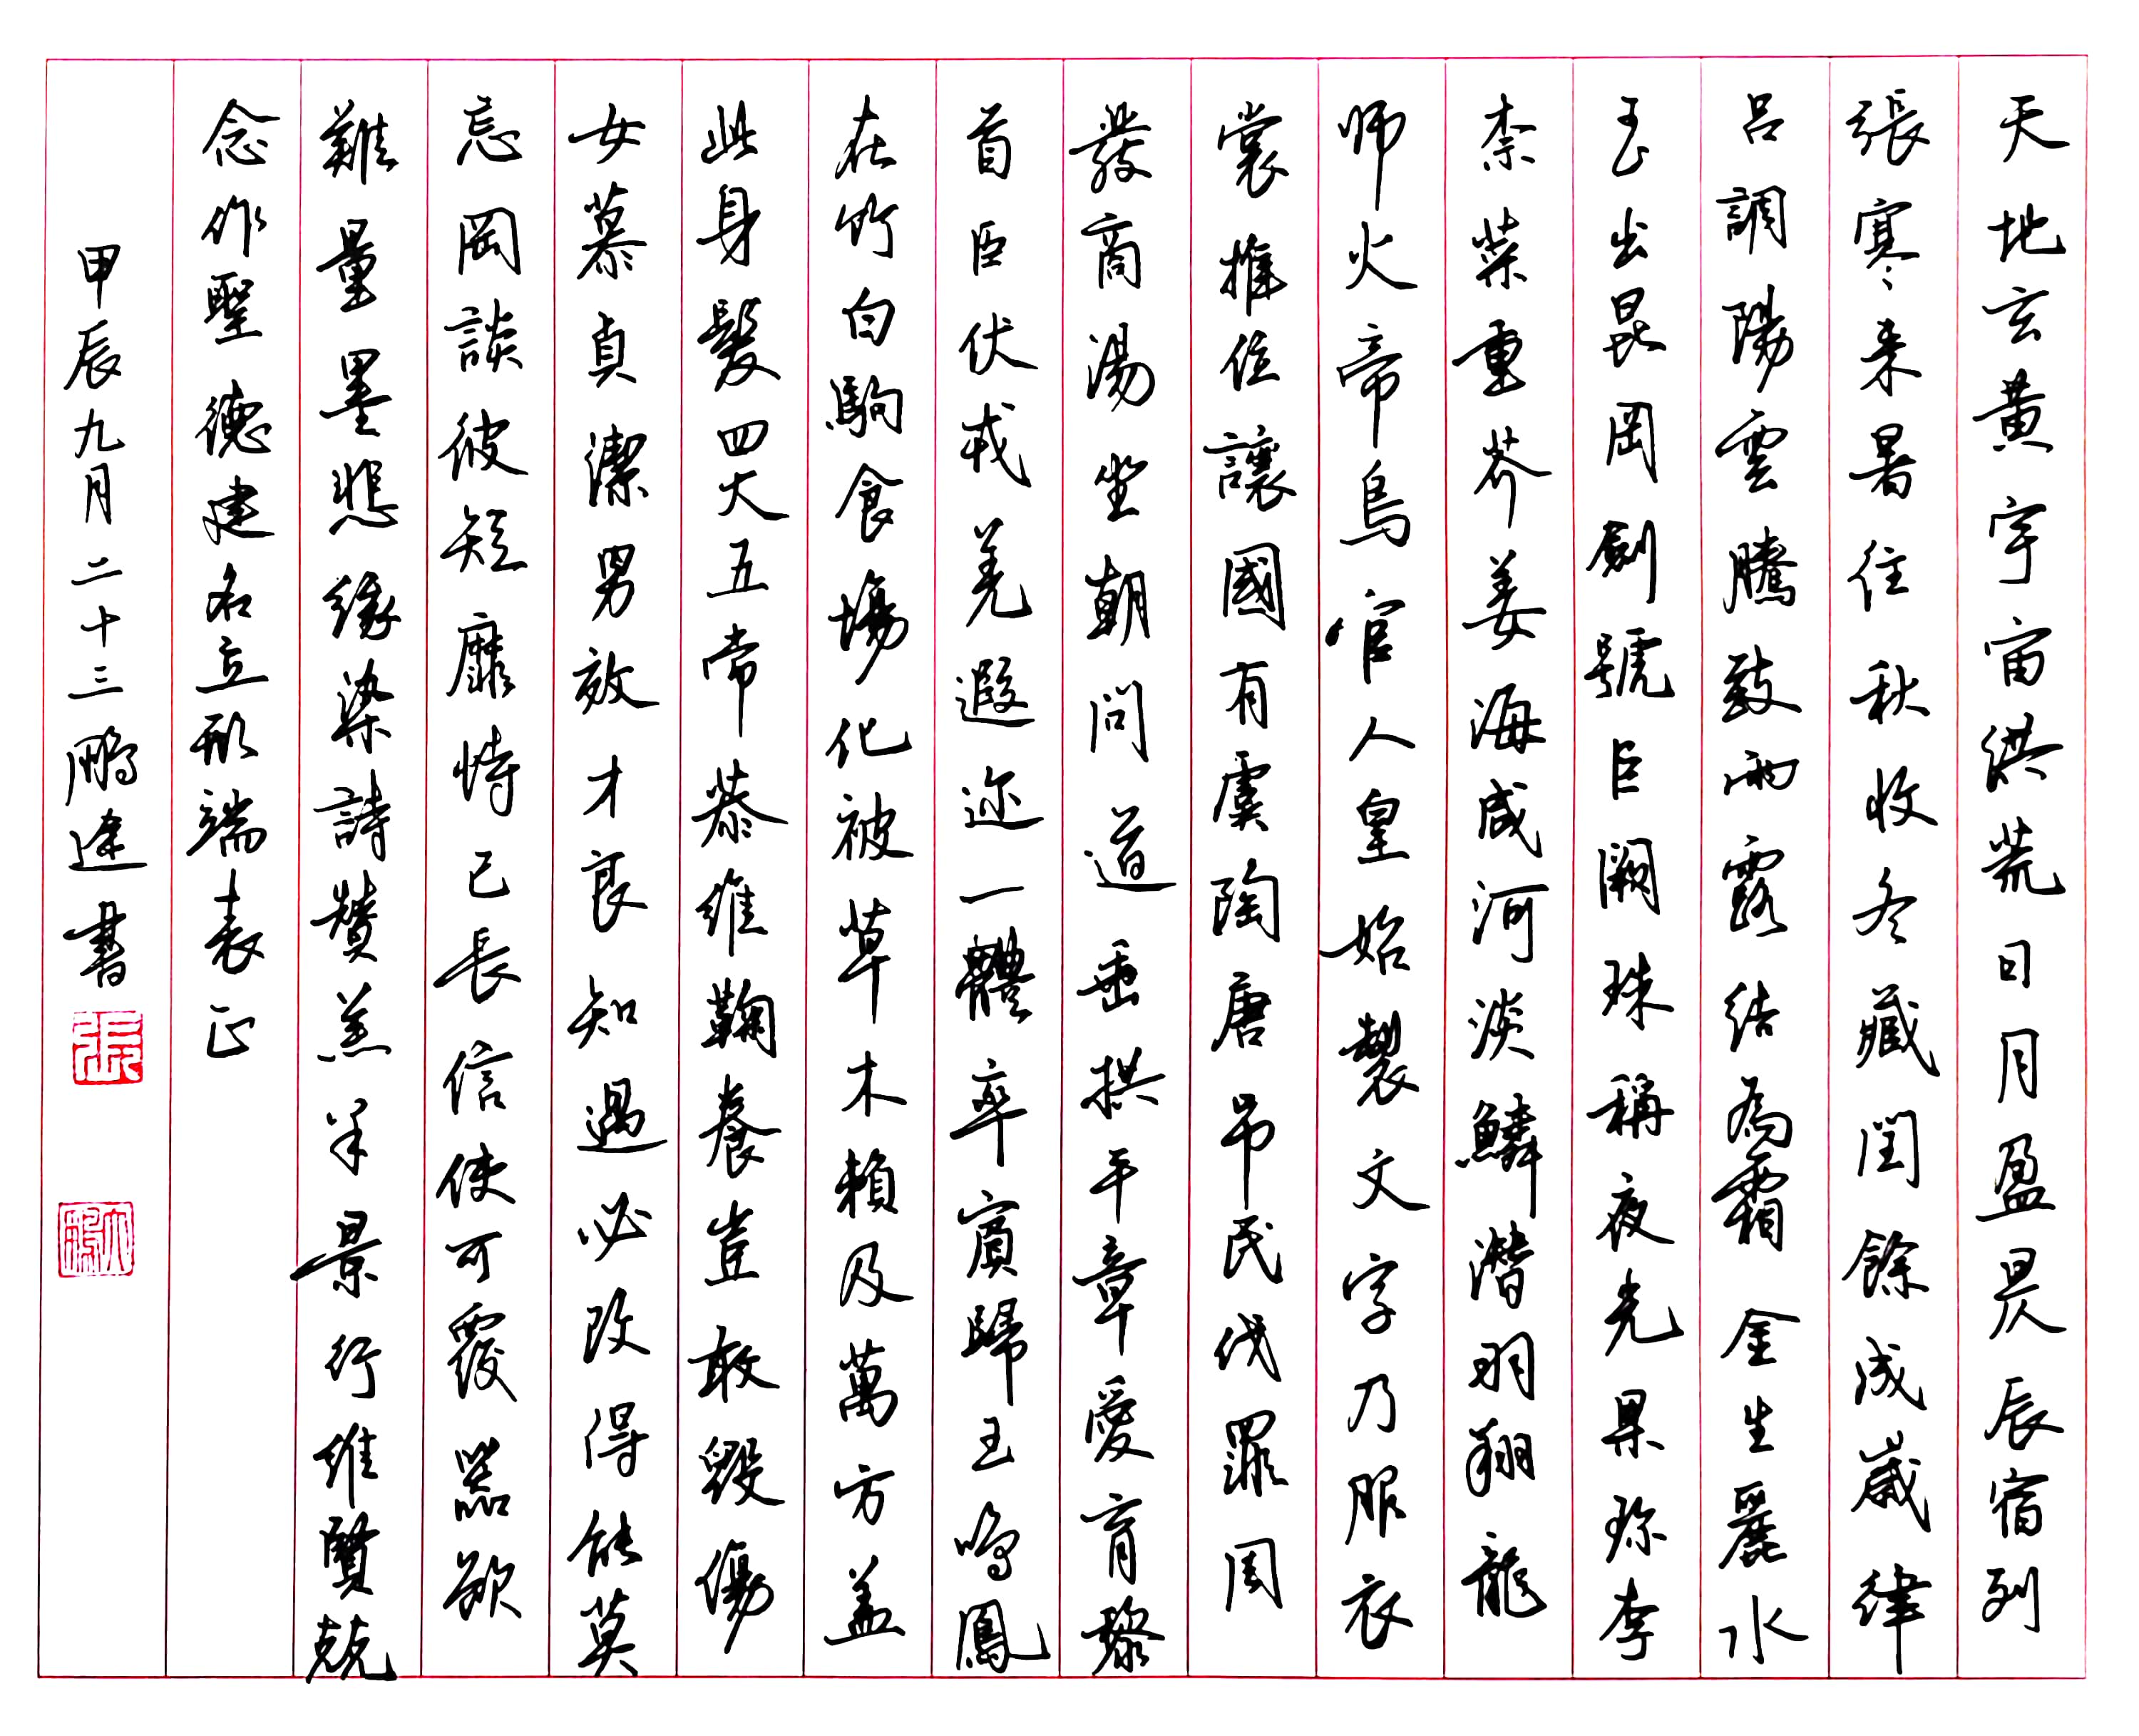 天地玄黄宇宙洪荒日月盈昃辰宿列
張寒来暑往秋收冬藏閏餘成歲律
吕調陽雲騰致雨露結為霜金生麗水
玉出昆岡劍號巨闕珠稱夜光果珍李
柰菜重芥姜海咸河淡鱗潜羽翔龍
师火帝鳥官人皇始製文字乃服衣
裳推位讓國有虞陶唐吊民伐罪周
發商湯坐朝問道垂拱平章愛育黎
首臣伏戎羌遐迩一體率賓歸王鳴鳳
在竹白駒食場化被草木賴及萬方盖
此身髮四大五常恭維鞠養豈敢毀傷
女慕貞潔男效才良知過必改得能莫
忘罔談彼短靡恃己長信使可覆器欲
難量墨悲緣染詩贊羔羊景行維賢
念作聖德建名立形端表正
甲辰九月二十三鵬達書
張